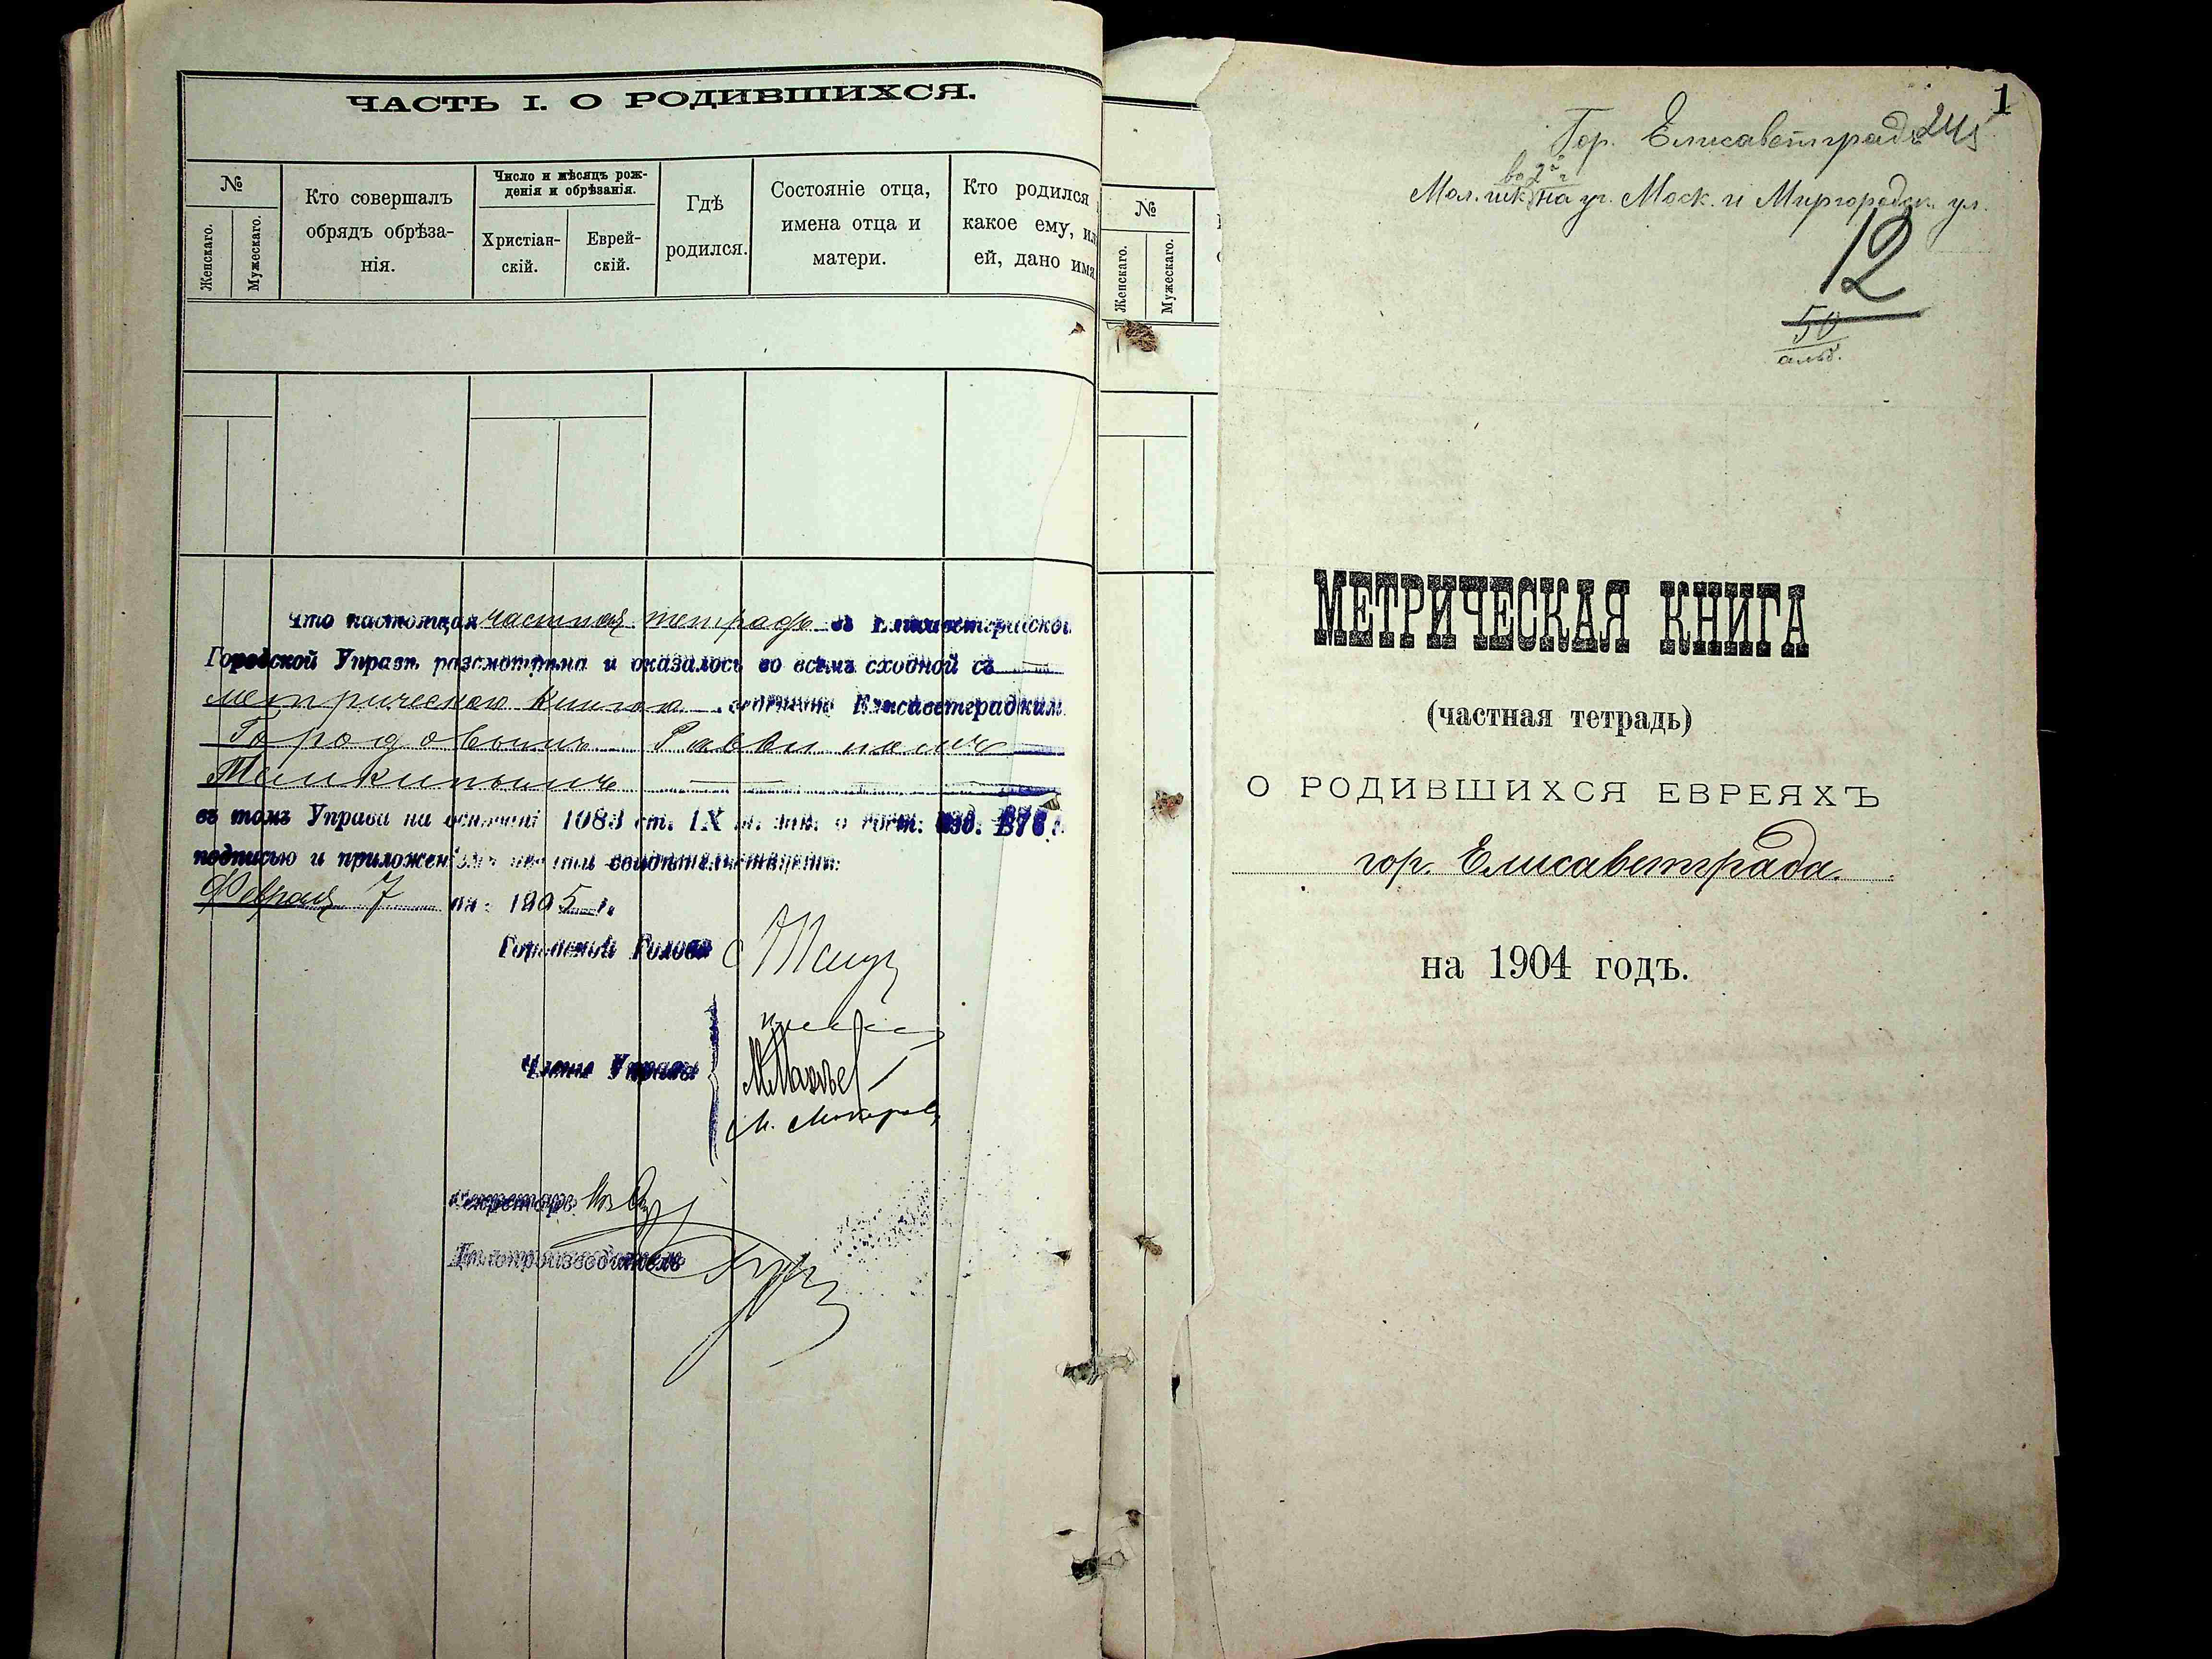 ЧАСТЬ I. О РОДИВШИХСЯ.
№
Женскаго.
Мужескаго.
Кто совершалъ
обрядъ обрѣза-
нія.
Число и мѣсяцъ рож-
денія и обрѣзанія.
Христіан-
скій.
Еврей-
скій.
Гдѣ
родился.
Состояніе отца,
имена отца и
матери.
Кто родился
какое ему, ил
ей, дано имя
что настоящая частная тетрадь въ Елисаветградской
Городской Управѣ разсмотрѣна и оказалось во всемъ сходной съ
метрическою книгою Елисаветградским
Городовымъ Раввиномъ
въ томъ Управа на основаніи 1083 ст. IX т. зак. о сост: изд. 1876 г.
подписью и приложеніемъ печати свидѣтельствуетъ:
Февраля 7 дня 1905 г.
Городской Голова
Члены Управы
Секретарь
Дѣлопроизводитель
№
Женскаго.
Мужескаго.
1
Гор. Елисаветградъ 245
во 2й ч
Мол. шк. на уг. Моск. и Миргородск. ул.
12
50
МЕТРИЧЕСКАЯ КНИГА
(частная тетрадь)
О РОДИВШИХСЯ ЕВРЕЯХЪ
гор. Елисаветграда.
на 1904 годъ.